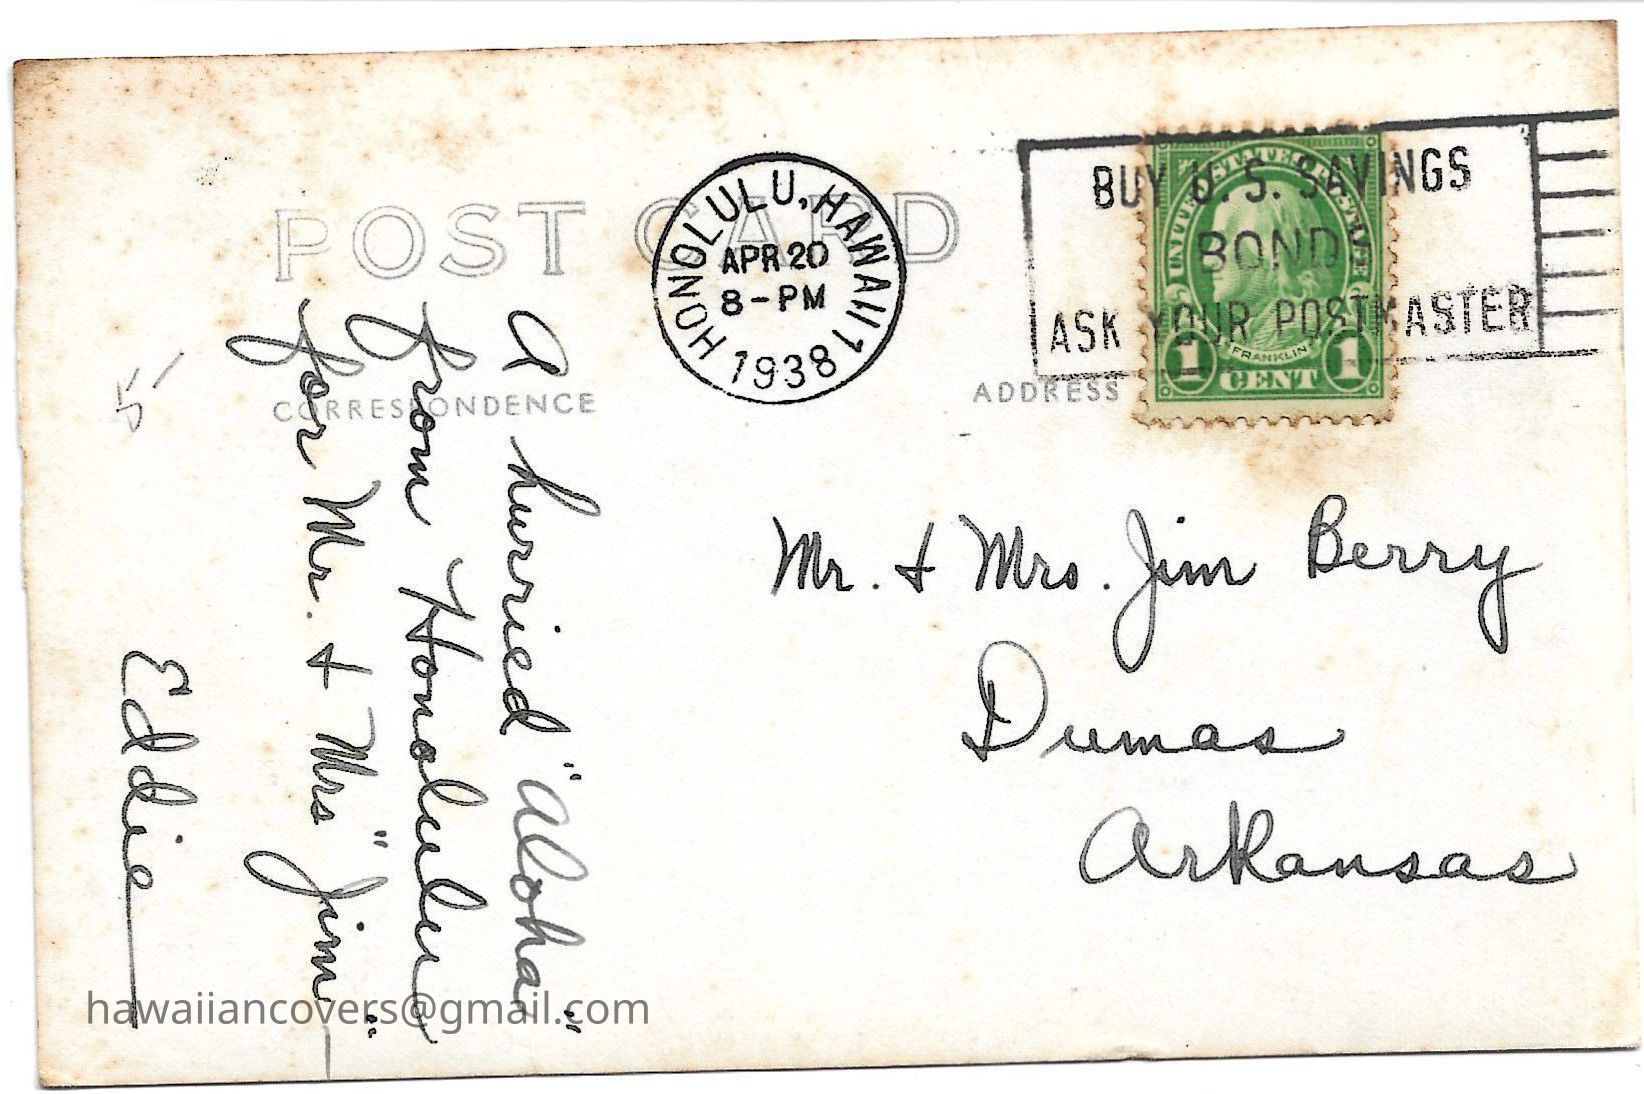 POST CARD
HONOLULU, HAWAII 1
APR 20
8-PM
1938
BUY U.S. SAVINGS
BOND
ASK YOUR POSTMASTER
UNITED STATES POSTAGE
FRANKLIN
1 CENT 1
CORRESPONDENCE
ADDRESS
A hurried "Aloha"
from Honolulu
for Mr. + Mrs "Jim"
Eddie
5-
Mr. + Mrs. Jim Berry
Dumas
Arkansas
hawaiiancovers@gmail.com